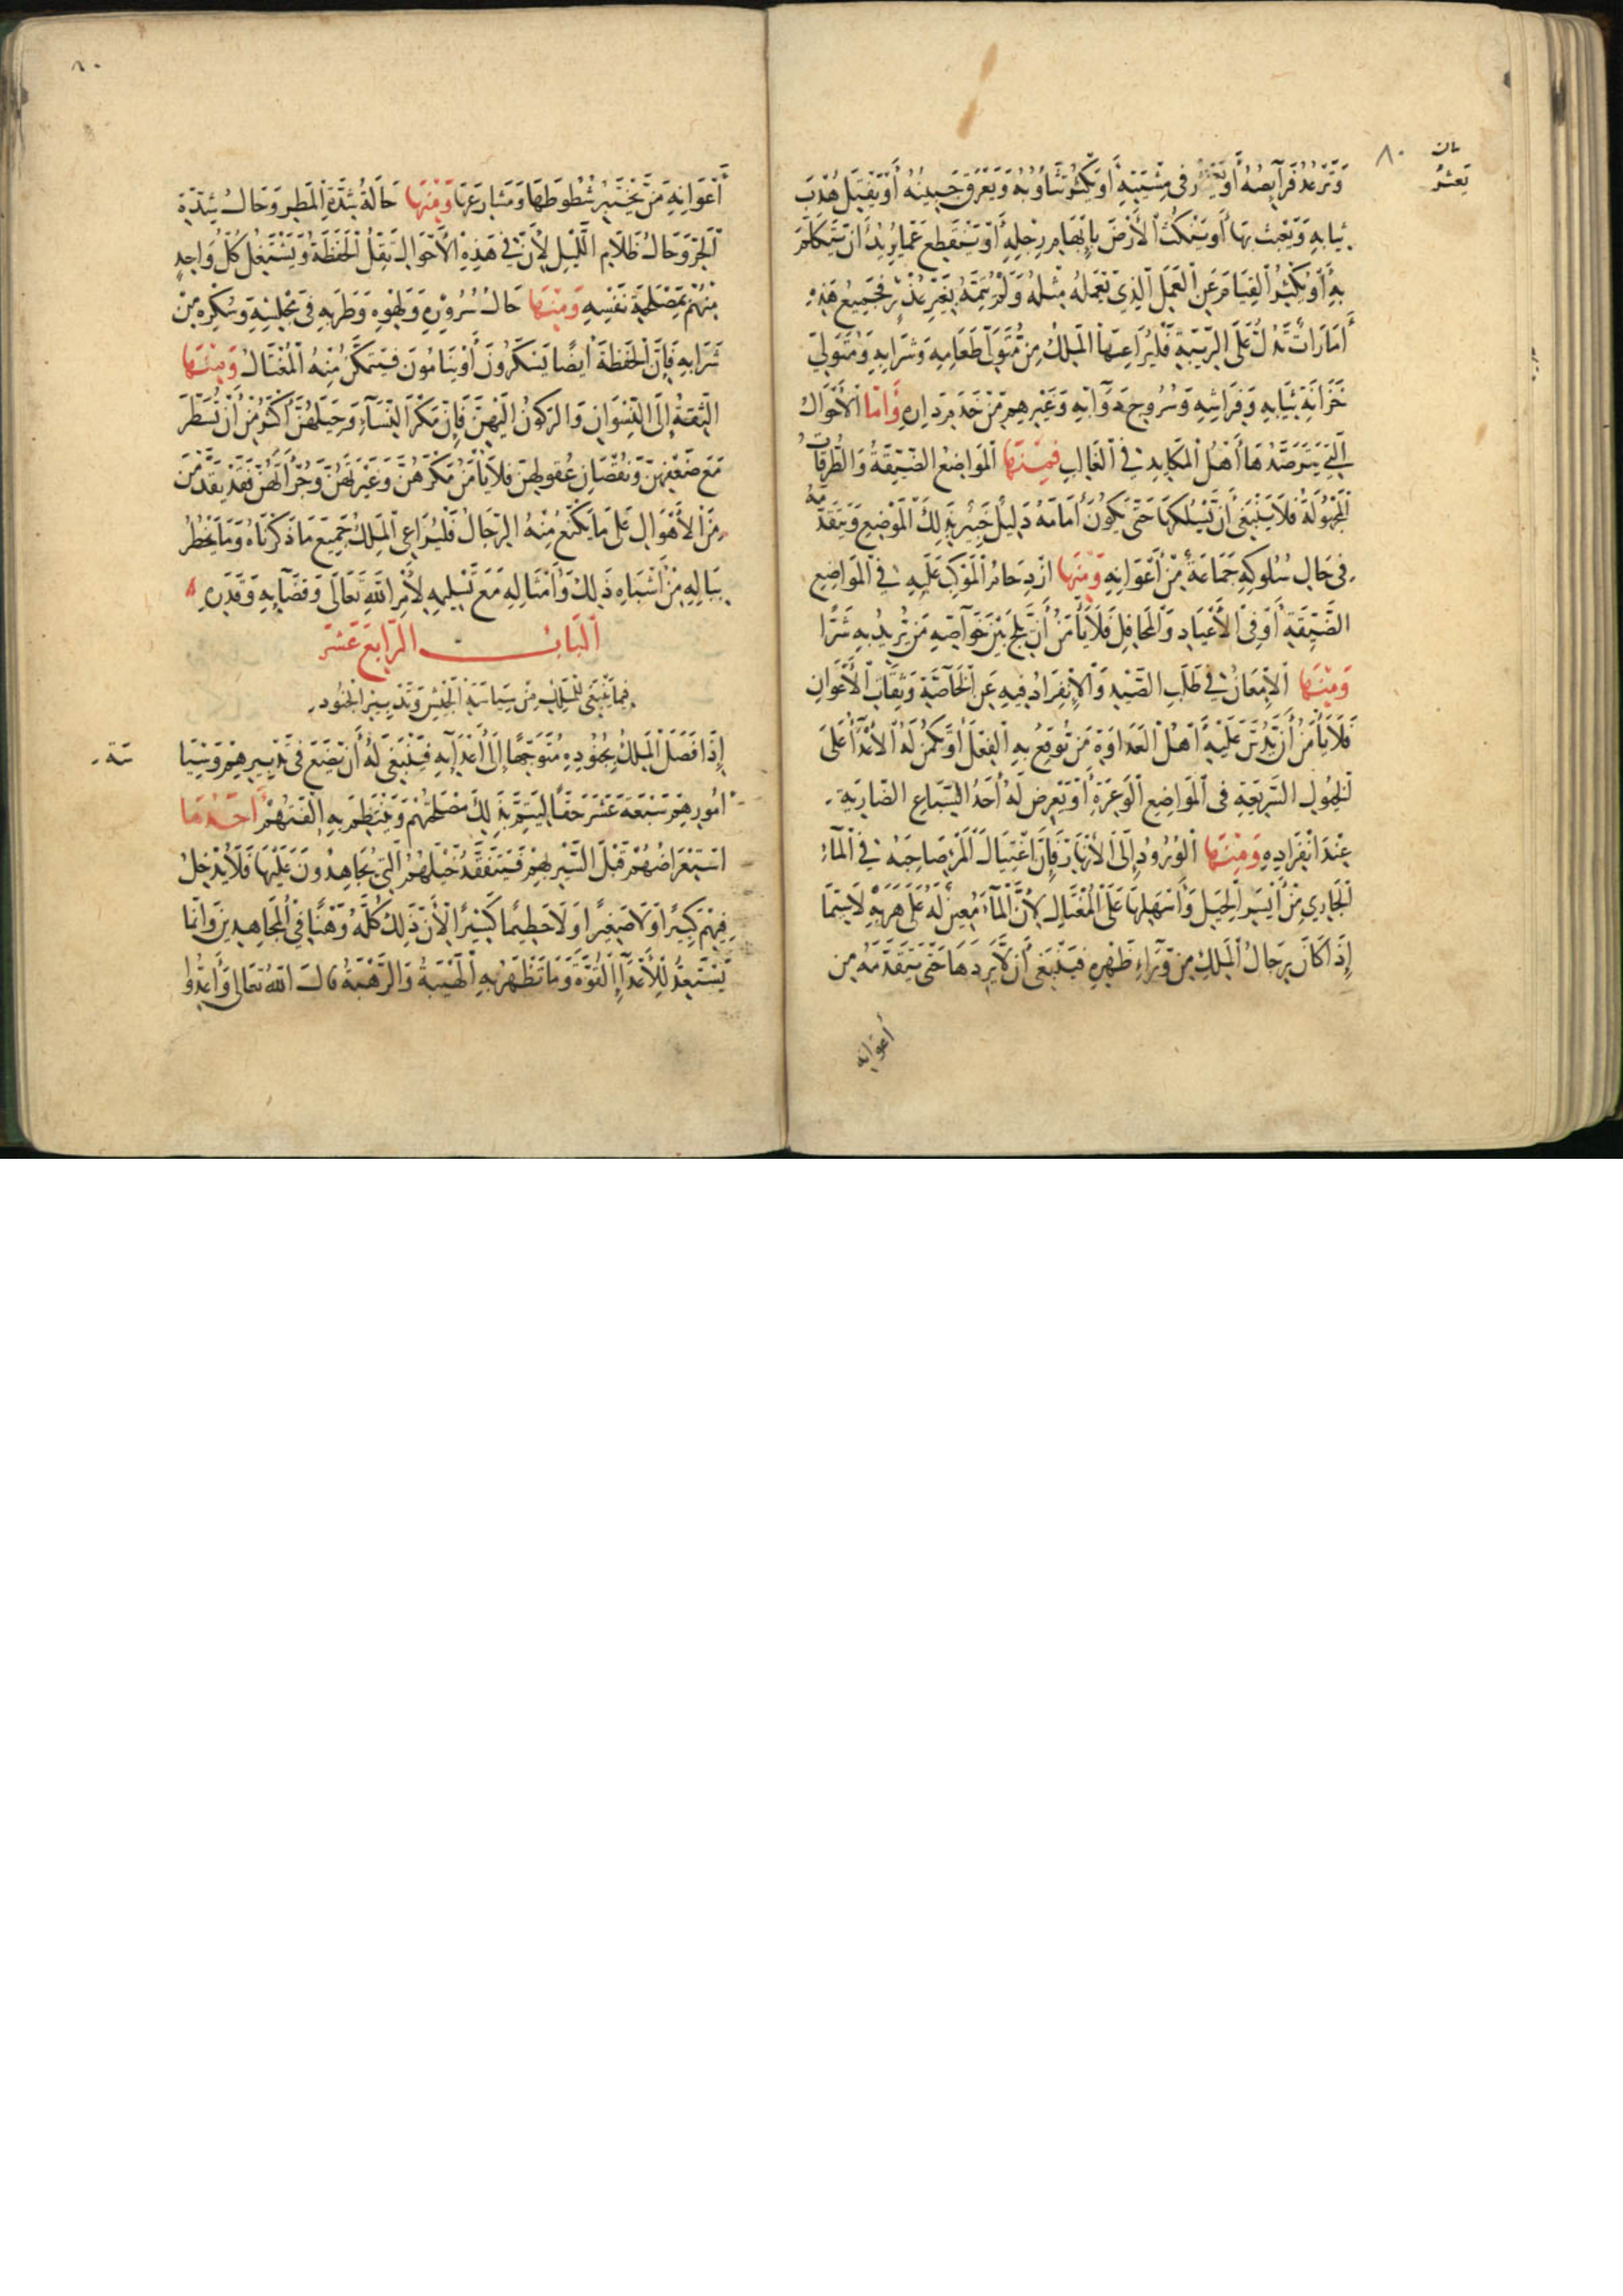 ٨٠
بان
تعثر
وَتَرعدُ فَرَآيصُهُ أَوْ يَتَعَثَّرُ فى مِشْيَتِهِ أَوْ يَكْثُرُ تَثَاؤُبُهُ وَيَعْرَقُ جَبِينُهُ أَوْ يَفْتِلُ هُدْبَ
ثِيَابِهِ وَيَعْبَثُ بهَا أَو يَنْكُتُ الأَرْضَ بِإِبْهَامِ رِجْلِهِ أَوْ يَنْقَطِع عَمَّا يُرِيْدُ أَنْ يَتَكَلَّمَ
بِهِ أَوْ يُكْثِرُ القِيَامَ عَنِ العَمَلِ الَّذِى يَعْمَلُهُ مِثْلُهُ وَلَمْ يُتِمَّهُ بِغَيْرِ عُذْرٍ فَجَمِيعُ هَذِهِ
أَمَارَاتٌ تَدُلُّ عَلَى الرِّيبَةِ فَلْيُرَاعِيهَا الْمَلِكُ مِنْ مُتَوَلِّى طَعَامِهِ وَشَرَابِهِ وَمُتَوَلِّى
خَزَانَةِ ثِيَابِهِ وَفَرَاشِهِ وَسُرُوجِ دَوَآبِّهِ وَغَيْرِهِمْ مِنْ خَدَمِ دَارِهِ وَأَمَّا الأَحْوَالُ
الَّتِي يَتَرَصَّدُهَا أَهْلُ الْمَكَايِدِ فِي الْغَالِبِ فَمِنْهَا الْمَوَاضِعُ الضَّيِّقَةُ وَالطُّرُقَاتُ
الْمَجْهُولَةُ فَلاَ يَنْبَغِى أَنْ يَسْلُكَهَا حَتَّى يَكُونَ أَمَامَهُ دَلِيلٌ خَبِيرٌ بِذَلِكَ الْمَوْضِعِ وَيَتَقَدَّمُهُ
فى حَالِ سُلُوكِهِ جَمَاعَةٌ مِنْ أَعْوَانِهِ وَمِنْهَا ازْدِحَامُ الْمَوْكِبِ عَلَيْهِ فِى الْمَوَاضِعِ
الضَّيِّقَةِ أَوْ فِى الأَعْيَادِ وَالْمَحَافِلِ فَلاَ يَأْمَنُ أَنْ يَلِجَ بَيْنَ خَوَآصِّهِ مَنْ يُرِيدُ بِهِ شَرًّا
وَمِنْهَا الإِمْعَانُ فِى طَلَبِ الصَّيْدِ وَالإِنْفِرَادُ فِيهِ عَنِ الْخَآصَّةِ وَثِقَاتِ الأَعْوَانِ
فَلاَ يَأْمَنُ أَنْ يَدُسَّ عَلَيْهِ أَهْلُ العَدَاوَةِ مَنْ يُوقِعُ بِهِ الْفِعْلَ أَوْ يَكْمُنُ لَهُ الأَعْدَآءُ عَلَى
الْخُيُولِ السَّرِيعَةِ فى الْمَوَاضِعِ الْوَعِرَةِ أَوْ يَعْرِضُ لَهُ أَحَدُ السِّبَاعِ الضَّارِيَةِ
عِنْدَ انْفِرَادِهِ وَمِنْهَا الْوُرُودُ إِلَى الأَنْهَارِ فَإِنَّ اغْتِيَالَ الْمَرْءِ صَاحِبَهُ فِى الْمَآءِ
الْجَارِي مِنْ أَيْسَرِ الْحِيَلِ وَأَسْهَلِهَا عَلَى الْمُغْتَالِ لِأَنَّ الْمَآءَ مُعِينٌ لَهُ عَلَى هَرَبِهِ لاَ سِيَّمَا
إِذَا كَانَ رِجَالُ الْمَلِكِ مِنْ وَرَآءِ ظَهْرِهِ فَيَنْبَغِى أَنْ لاَّ يَرِدَهَا حَتَّى يَتَقَدَّمَهُ مِن
أعوانه
٨٠
أَعْوَانِهِ مَنْ يَخْتَبِرُ شُطُوطَهَا وَمَشَارِعَهَا وَمِنْهَا حَالَةُ شِدَّةِ الْمَطَرِ وَحَالُ شِدَّةِ
الْحَرِّ وَحَالُ ظَلاَمِ اللَّيْلِ لِأَنَّ فِي هَذِهِ الأَحْوَالِ تَقِلُّ الْحَفَظَةُ وَيَشْتَغِلُ كُلُّ وَاحِدٍ
مِنْهُمْ بِمَصْلَحَةِ نَفْسِهِ وَمِنْهَا حَالُ سُرُورِهِ وَلَهْوِهِ وَطَرَبِهِ فِى مَجْلِسِهِ وَسُكْرِهِ مِنْ
شَرَابِهِ فَإِنَّ الْحَفَظَةَ أَيْضًا يَسْكَرُونَ أَوْ يَنَامُونَ فَيَتَمَكَّنُ مِنْهُ الْمُغْتَالُ وَمِنْهَا
الثِّقَةُ إِلَى النِّسْوَانِ وَالرُّكُونُ إِلَيْهِنَّ فَإِنَّ مَكْرَ النِّسَآءِ وَحِيَلَهُنَّ أَكْثَرُ مِنْ أَنْ تُسَطَّرَ
مَعَ ضَعْفِهِنَّ وَنُقْصَانِ عُقُولِهِنَّ فَلاَ يَأْمَنُ مَكْرَهُنَّ وَغَيْرَتَهُنَّ وَجُرْأَتَهُنَّ فَقَدْ يَقْدِمْنَ
مِنَ الأَهْوَالِ عَلَى مَا يَكُعُّ مِنْهُ الرِّجَالُ فَلْيُرَاعِى الْمَلِكُ جَمِيعَ مَا ذَكَرْنَاهُ وَمَا يَخْطُرُ
بِبَالِهِ مِنْ أَشْبَاهِ ذَلِكَ وَأَمْثَالِهِ مَعَ تَسْلِيمِهِ لِأَمْرِ اللهِ تَعَالَى وَقَضَآيِهِ وَقَدَرِهِ
الْبَابُ الرَّابِعَ عَشَرَ
فيمَا يَنْبَغِى لِلْمَلِكِ مِنْ سِيَاسَةِ الْجَيْشِ وَتَدْبِيرِ الْجُنُودِ
إِذَا فَصَلَ الْمَلِكُ بِجُنُودِهِ مُتَوَجِّهًا إِلَى أَعْدَآيِهِ فَيَنْبَغِى لَهُ أَنْ يَصْنَعَ فِى تَدْبِيرِهِمْ وَسِيَا
سَة
أُمُورِهِمْ سَبْعَةَ عَشَرَ حَقًّا لِيَتِمَّ بِذَلِكَ مَصْلَحَتُهُمْ وَيَنْتَظِمَ بِهِ إِلْفَتُهُمْ أَحَدُهَا
اسْتِعْرَاضُهُمْ قَبْلَ السَّيْرِ بِهِمْ فَيَتَفَقَّدُ خَيْلَهُمُ الَّتِي يُجَاهِدُونَ عَلَيْهَا فَلاَ يُدْخِلُ
فِيهِمْ كَبِيرًا وَلاَ صَغِيرًا وَلاَ حَطِيمًا كَسِيرًا لأَنَّ ذَلِكَ كُلَّهُ وَهْنًا فِى الْمُجَاهِدِينَ وَانَّمَا
يَسْتَعِدُّ لِلأَعْدَآءِ الْقُوَّةَ وَمَا تَظْهَرُ بِهِ الْهَيْبَةُ وَالرَّهْبَةُ قال الله تَعَالَى وَأَعِدُّوا